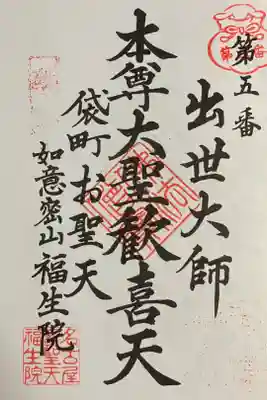 第五番
出世大師
本尊大聖歓喜天
袋町お聖天
如意密山福生院
名古屋
福生院